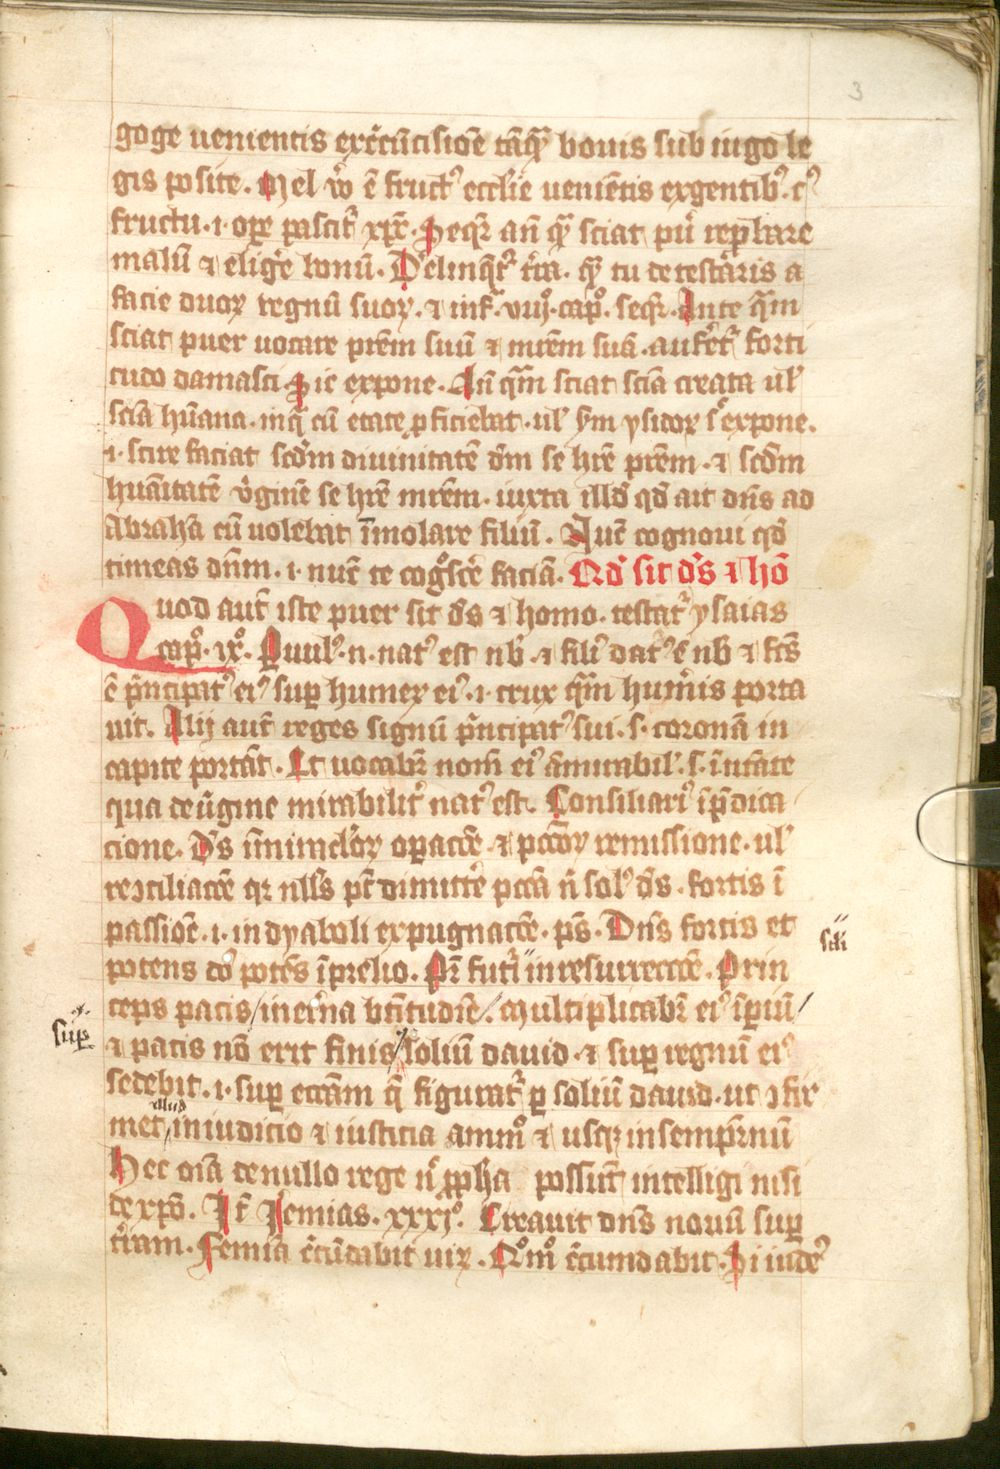 3
goge uenientis ex ċcūcisiōe tāqȝ bouis sub iugo le
gis posite. Mel v̓o ē fruct᷒ eccl̓ie ueniētis ex gentib᷒. c᷒
fructu .i. oꝑe pascit᷑ xp̄c. Seqr̄ an̄ qȝ sciat pu̓ rep̱bare
malū ⁊ elig̓e bonū. Delinq̄t᷑ t̓ra. qȝ tu detesta̓ris a
facie duoꝝ regnū suoꝝ. ⁊ inf͛. viij. cap̊. seqr̄. Ante qȝm
sciat puer uocare pr̄em suū ⁊ mr̄em suā. aufert᷑ forti
tudo damasci Sic expone. An̄ qȝm sciat sciā creata ul̓
sciā hūana. in q̄ cū etate ꝓficiebat. ul̓ sm̄ ysidoꝝ s͛ expone.
.i. scire faciat scd̄m diuinitatē dm̄ se hr̄e pr̄em. ⁊ scd̄m
huānitatē v̓ginē se hr̄e mr̄em. iuxta illd̓ qd̓ ait dn̄s ad
Abrahā cū uolebat īmolare filiū. Nūc cognoui qd̓
timeas dn̄m. .i. nūc te cog̊sc̓e faciā. Qd̓ sit d̓s ⁊ hō
Quod aut̄ iste puer sit d̓s ⁊ homo. testat᷑ ysaias
cap̊. ix̊. Puul᷒ .n. nat᷒ est nb̓. ⁊ fili᷒ dat᷒ ē nb̓ ⁊ fc̄s
ē p̓ncipat᷒ ei᷒ suꝑ humeꝝ ei᷒ .i. crux qȝm hum̓is porta
uit. Alij aut̄ reges signū p̓ncipat᷒ sui .s. coronā in
capite portāt. Et uocabr̄ nom̄ ei᷒ āmirabil̓ .s. ī nat̄ate
qua de v̓gine mirabilit̓ nat᷒ est. Consiliari᷒ ī p̄dica
cione. D̓s ī mirac̓loꝝ oꝑacōe ⁊ pcc̄oꝝ remissione. ul̓
recōciliacōe qr nll̓s pt̄ dimitt̓e pccā n̄ sol᷒ d̓s. fortis ī
passiōe .i. in dyaboli expugnacōe. ps̄. Dn̄s fortis et
potens dn̄s potēs ī prelio. Pr̄ futi̓ in resurreccōe. Prin
scīi
ceps pacis / in et̓na bt̄itudīe / Multiplicabr̄ ei᷒ īꝑiū /
suꝑ
⁊ pacis nō erit finis / soliū dauid. ⁊ suꝑ regnū ei᷒
sedebit .i. suꝑ ecc̄am q̄ figurat᷑ ꝑ soliū dauid. ut ꝯfir
illud
met / in iudicio ⁊ iusticia amm̊ ⁊ usqȝ in sempi̓nū
Hec oīa de nullo rege n̓ ꝓpha possūt intelligi nisi
de xp̄o. It̄ Jemias. xxxj̊. Creauit dn̄s nouū suꝑ
t̓ram. Femīa c̓cūdabit uiꝝ. Qm̊ c̓cumdabit. Si iude᷒